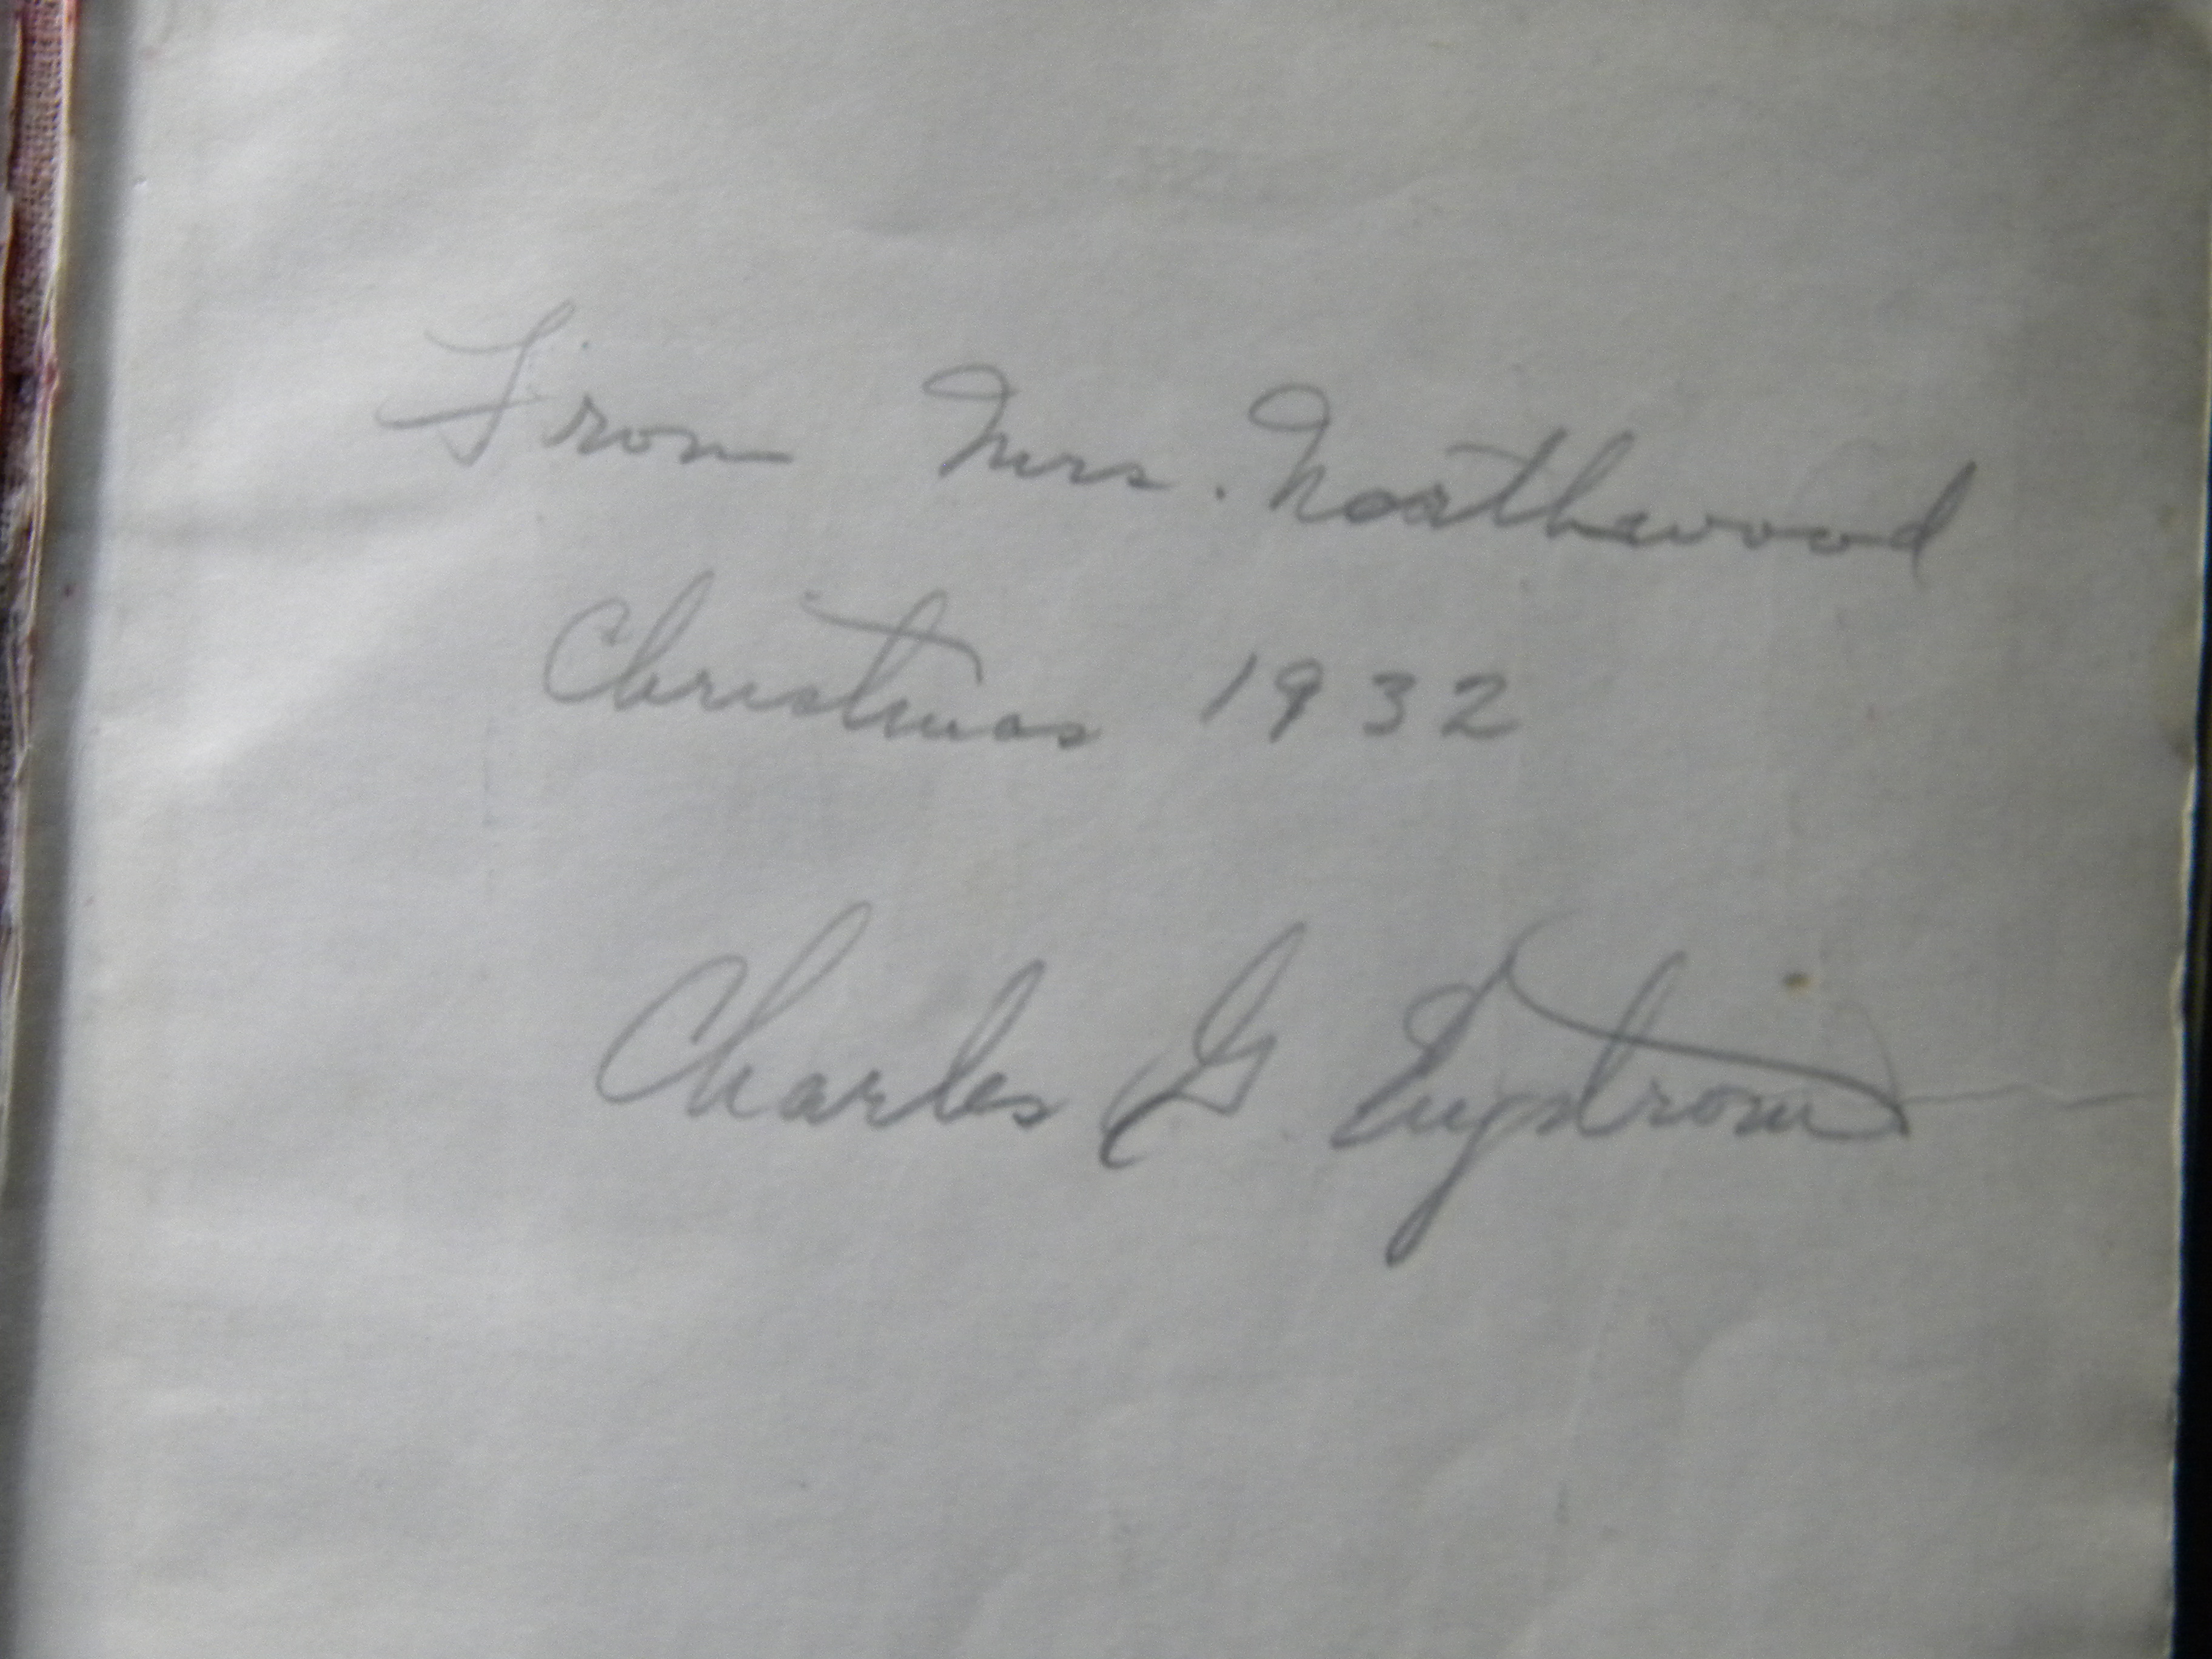 From Mrs. Northwood
Christmas 1932
Charles G Engstrom